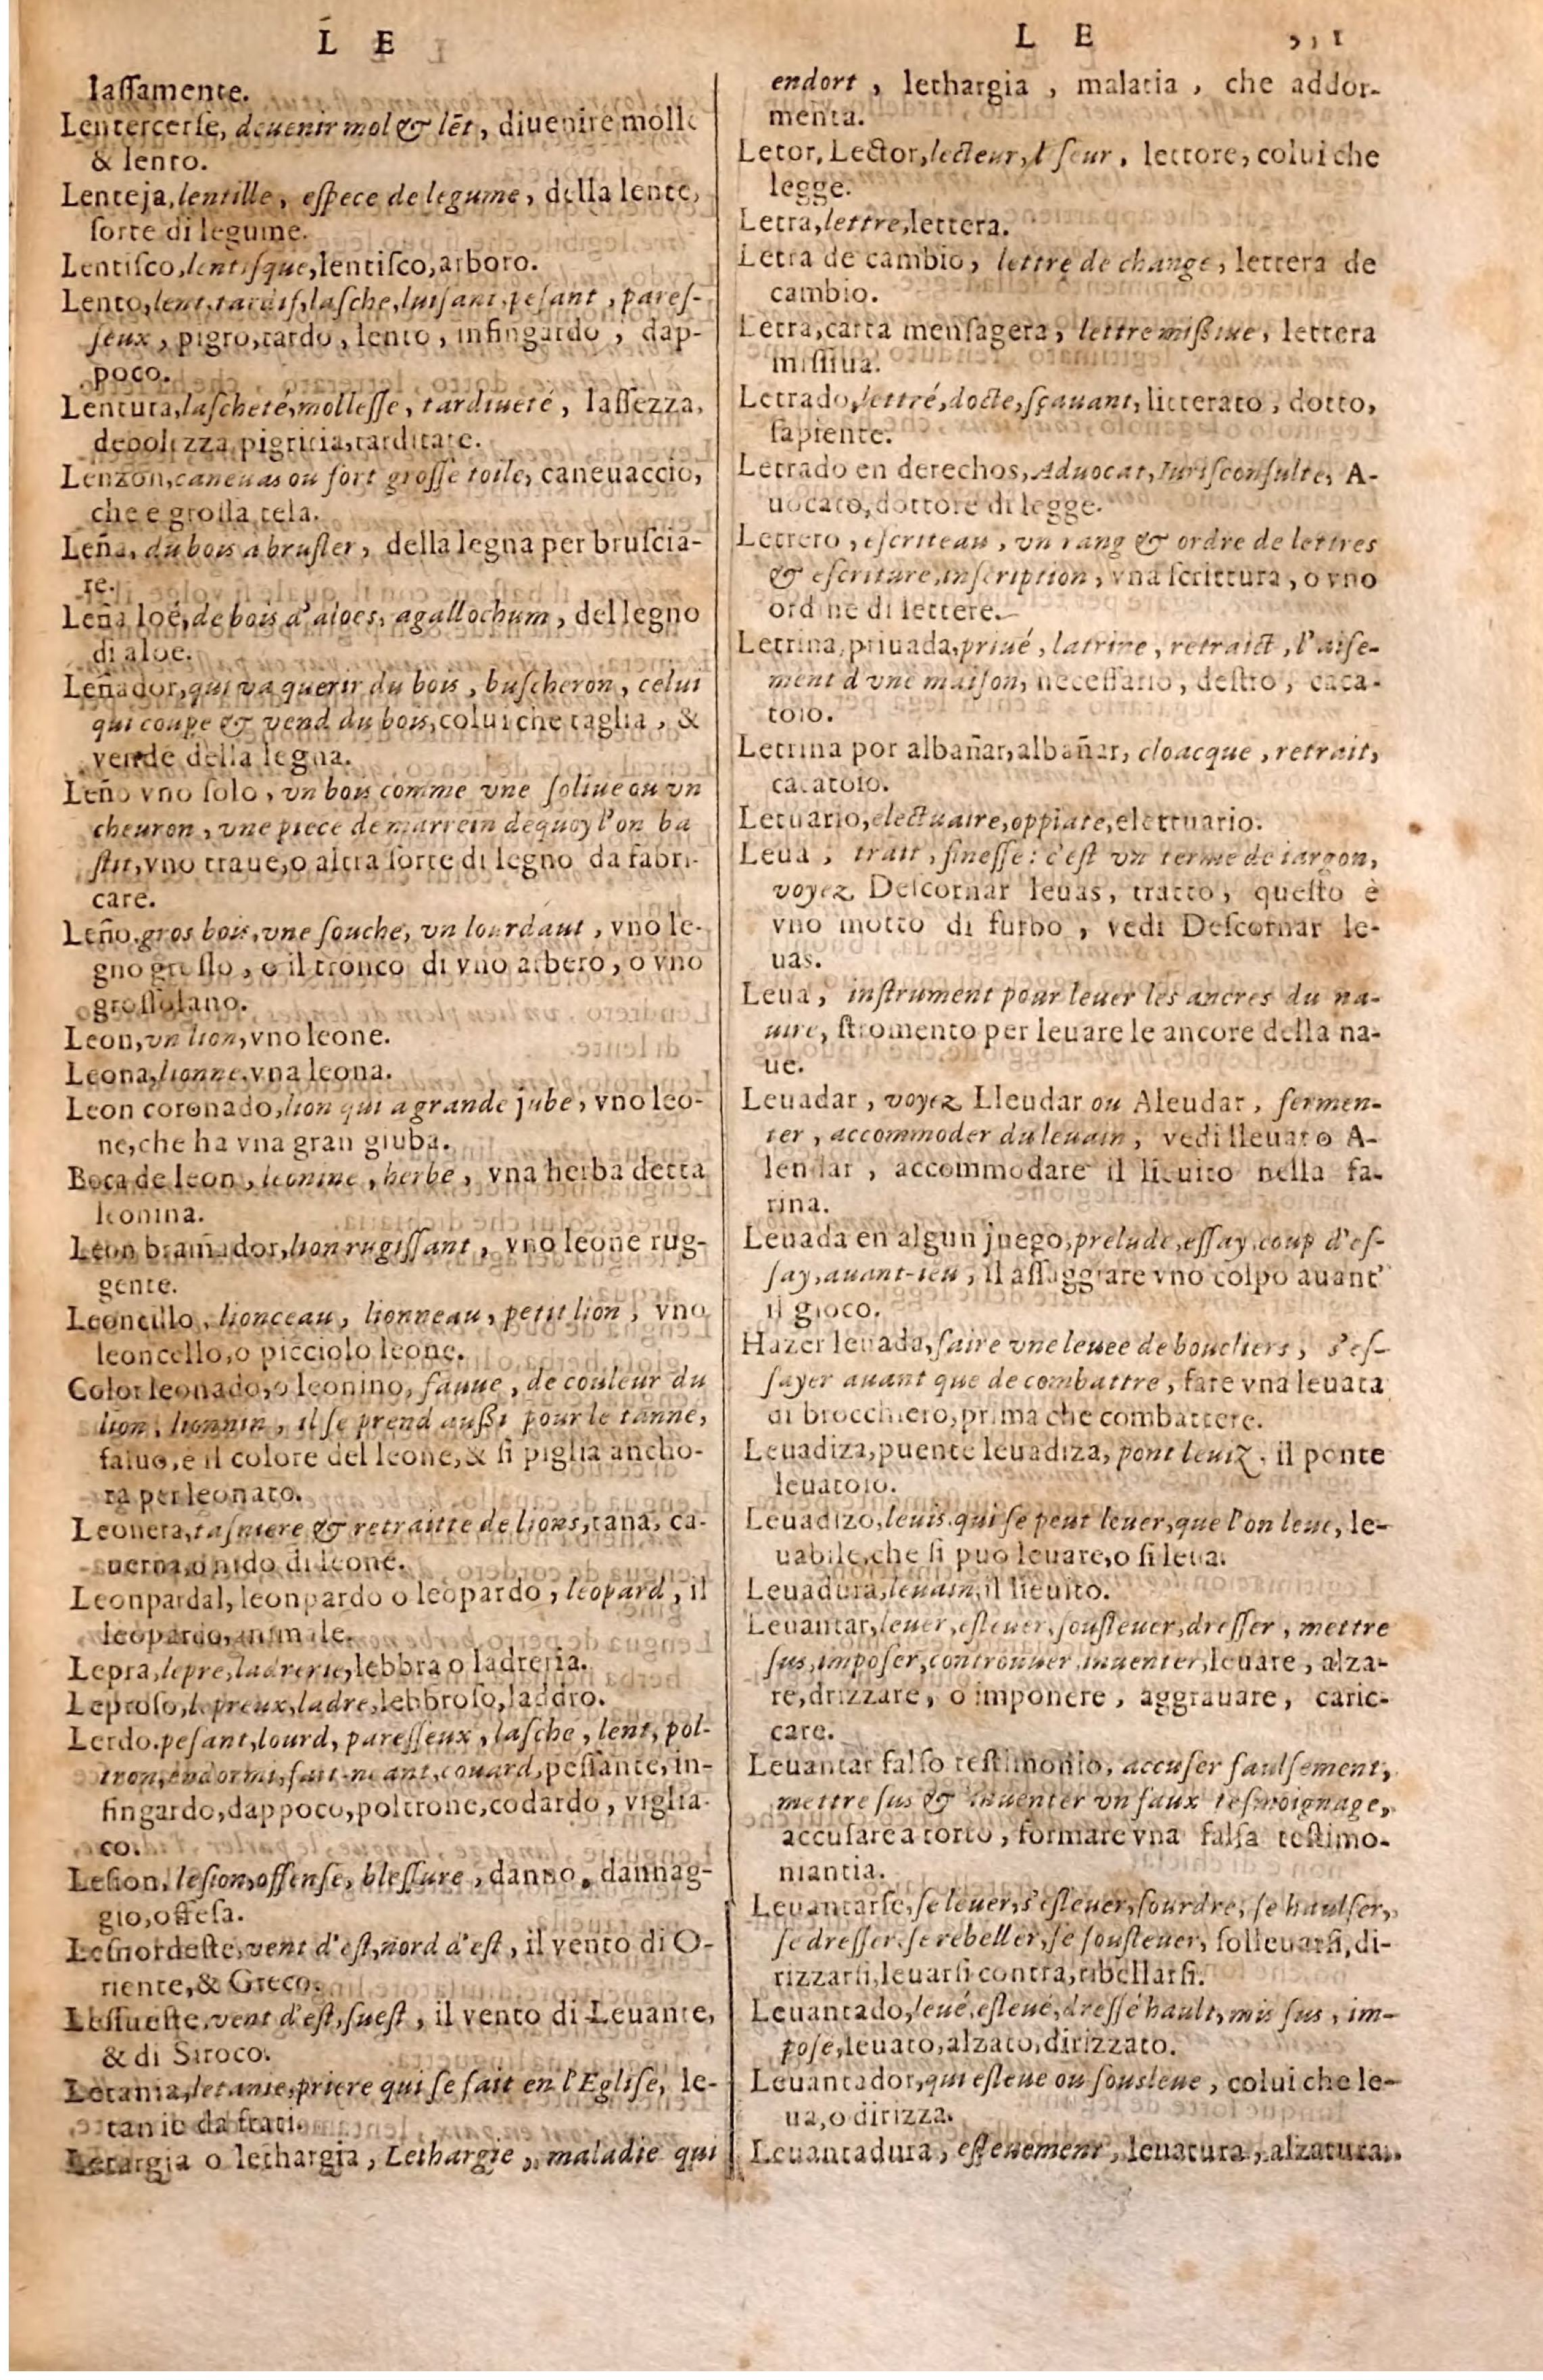 L E
laſſamente.
Lentercerſe, deuenir mol & lẽt, diuenire molle
& lento.
Lenteja, lentille, eſpece de legume, della lente,
ſorte di legume.
Lentiſco, lentiſque, lentiſco, arboro.
Lento, lent, tardif, laſche, luiſant, peſant, pareſ-
ſeux, pigro, tardo, lento, infingardo, dap-
poco.
Lentura, laſcheté, molleſſe, tardiueté, laſſezza,
debolezza pigritia, tarditate.
Lenzon, caneuas ou fort groſſe toile, caneuaccio,
che e groſſa tela.
Leña, du bois à bruſler, della legna per bruſcia-
re.
Leña loé, de bois d'aloes, agallochum, del legno
di aloe.
Leñador, qui va querir du bois, buſcheron, celui
qui coupe & vend du bois, colui che taglia, &
vende della legna.
Leño vno ſolo, vn bois comme vne ſoliue ou vn
cheuron, vne piece de marrein dequoy l'on ba
ſtit, vno traue, o altra ſorte di legno da fabri-
care.
Leño. gros bois, vne ſouche, vn lourdaut, vno le-
gno groſſo, o il tronco di vno arbero, o vno
groſſolano.
Leon, vn lion, vno leone.
Leona, lionne, vna leona.
Leon coronado, lion qui a grande jube, vno leo-
ne, che ha vna gran giuba.
Boca de leon, leonine, herbe, vna herba detta
leonina.
Leon bramador, lion rugiſſant, vno leone rug-
gente.
Leoncillo, lionceau, lionneau, petit lion, vno
leoncello, o picciolo leone.
Color leonado, o leonino, fauue, de couleur du
lion, lionnin, il ſe prend außi pour le tanne,
faluo, e il colore del leone, & ſi piglia ancho-
ra per leonato.
Leonera, taſniere & retraitte de lions, tana, ca-
uerna, o nido di leone.
Leonpardal, leonpardo o leopardo, leopard, il
leopardo, animale.
Lepra, lepre, ladrerie, lebbra o ladreria.
Leproſo, lepreux, ladre, lebbroſo, laddro.
Lerdo. peſant, lourd, pareſſeux, laſche, lent, pol-
tron, endormi, fait-neant, couard, peſſante, in-
fingardo, dappoco, poltrone, codardo, viglia-
co.
Leſion, leſion, offenſe, bleſſure, danno, dannag-
gio, offeſa.
Leſnordeſte, vent d'eſt, nord d'eſt, il vento di O-
riente, & Greco.
Leſſueſte, vent d'eſt, ſueſt, il vento di Leuante,
& di Siroco.
Letania, letanie, priere qui ſe fait en l'Egliſe, le-
tanie da frati.
Letargia o lethargia, Lethargie, maladie qui
L E
endort, lethargia, malatia, che addor-
menta.
Letor, Lector, lecteur, lettore, colui che
legge.
Letra, lettre, lettera.
Letra de cambio, lettre de change, lettera de
cambio.
Letra, carta menſagera, lettre mißiue, lettera
miſſiua.
Letrado, lettré, docte, ſçauant, litterato, dotto,
ſapiente.
Letrado en derechos, Aduocat, Iuriſconſulte, A-
uocato, dottore di legge.
Letrero, eſcriteau, vn rang & ordre de lettres
& eſcriture, inſcription, vna ſcrittura, o vno
ordine di lettere.
Letrina, priuada, priué, latrine, retraict, l'aiſe-
ment d'vne maiſon, neceſſario, deſtro, caca-
toio.
Letrina por albañar, albañar, cloacque, retrait,
cacatoio.
Letuario, electuaire, oppiate, elettuario.
Leua, trait, fineſſe: c'eſt vn terme de iargon,
voyez Deſcornar leuas, tratto, queſto è
vno motto di furbo, vedi Deſcornar le-
uas.
Leua, inſtrument pour leuer les ancres du na-
uire, ſtromento per leuare le ancore della na-
ue.
Leuadar, voyez Lleudar ou Aleudar, fermen-
ter, accommoder du leuain, vedi lleuato A-
lendar, accommodare il lieuito nella fa-
rina.
Leuada en algun juego, prelude, eſſay, coup d'eſ-
ſay, auant-ieu, il aſſaggiare vno colpo auant'
il gioco.
Hazer leuada, faire vne leuee de boucliers, s'eſ-
ſayer auant que de combattre, fare vna leuata
di brocchiero, prima che combattere.
Leuadiza, puente leuadiza, pont leuiz, il ponte
leuatoio.
Leuadizo, leuis. qui ſe peut leuer, que l'on leue, le-
uabile, che ſi può leuare, o ſi leua.
Leuadura, leuain, il lieuito.
Leuantar, leuer, eſleuer, ſouſleuer, dreſſer, mettre
ſus, impoſer, controuuer, inuenter, leuare, alza-
re, drizzare, o imponere, aggrauare, caric-
care.
Leuantar falſo teſtimonio, accuſer faulſement,
mettre ſus & inuenter vn faux teſmoignage,
accuſare a torto, formare vna falſa teſtimo-
niantia.
Leuantarſe, ſe leuer, s'eſleuer, ſourdre, ſe haulſer,
ſe dreſſer. ſe rebeller, ſe ſouſleuer, ſolleuarſi, di-
rizzarſi, leuarſi contra, ribellarſi.
Leuantado, leué, eſleué, dreſſé hault, mis ſus, im-
poſe, leuato, alzato, dirizzato.
Leuantador, qui eſleue ou ſousleue, colui che le-
ua, o dirizza.
Leuantadura, eſleuement, leuatura, alzatura.